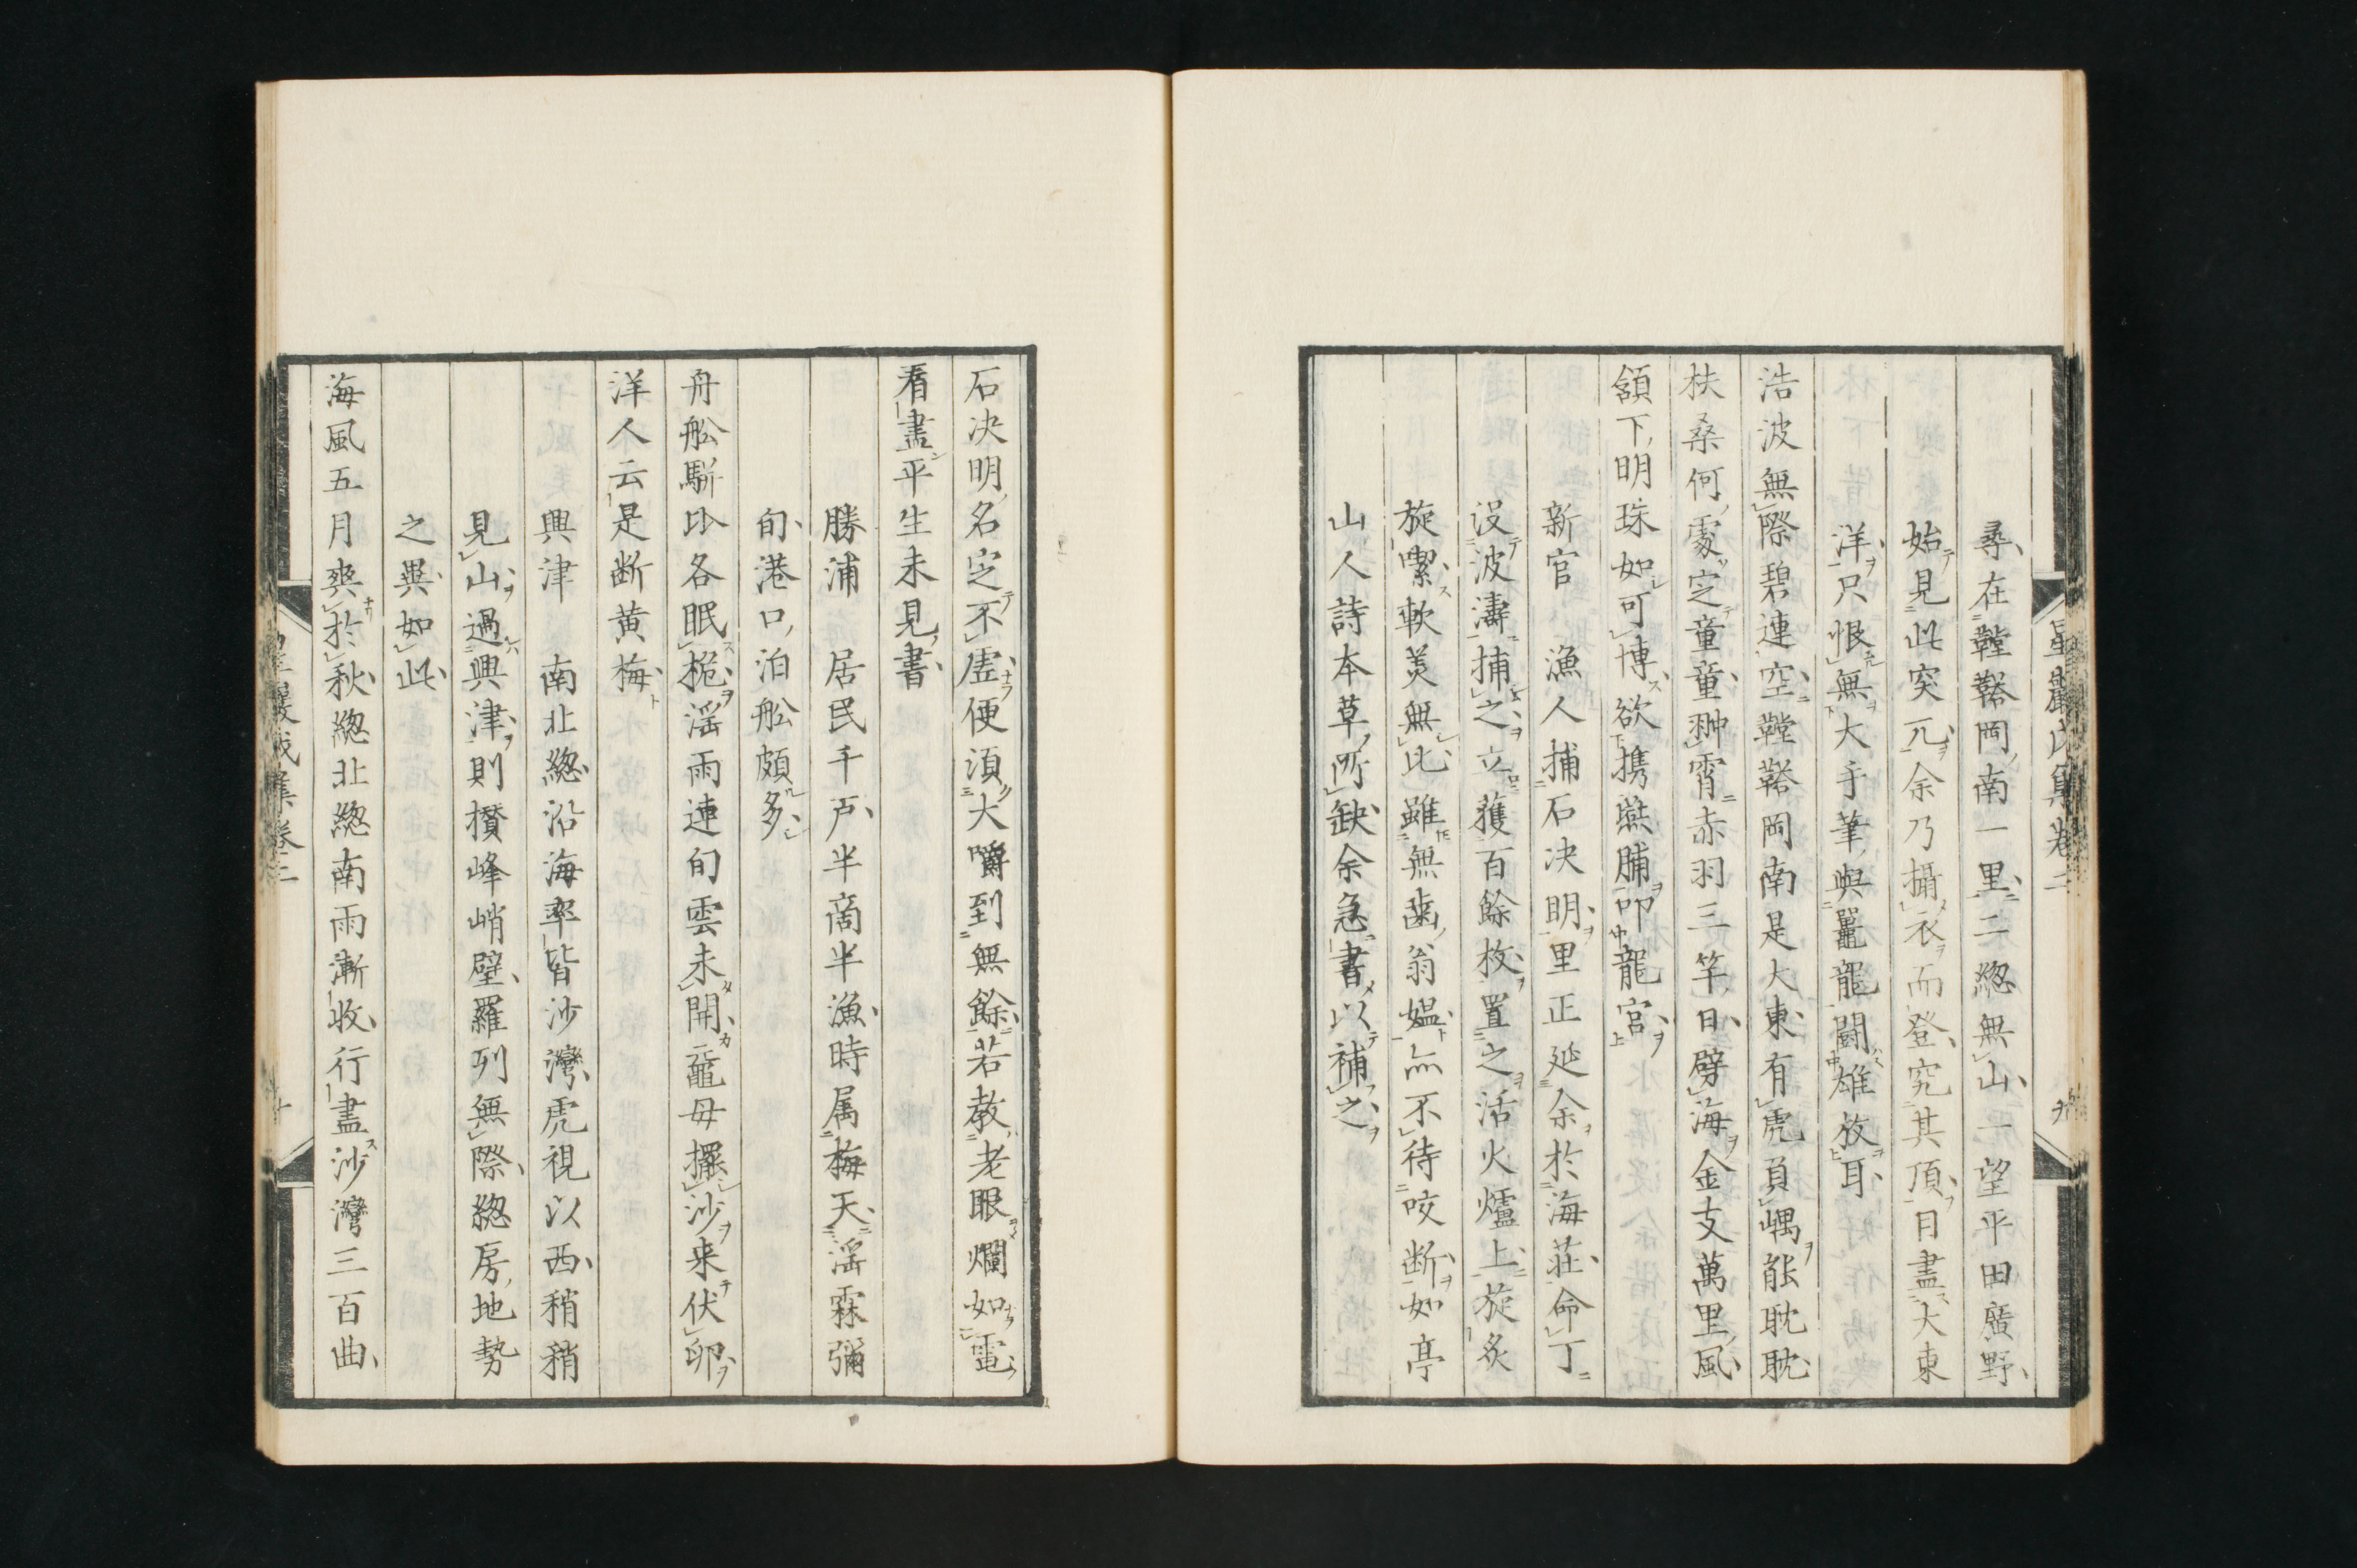 尋、在鞺鞳岡、南一里、二緫無山、一望平田廣野、
始見此突兀、余乃攝衣而登、究其頂、目盡大東
洋、只恨無大手筆、與鼉龍鬪雄放耳、
浩波無際碧連空、鞺鞳岡南是大東、有虎負嵎能耽耽、
扶桑何處定童童、翀霄赤羽三竿日、劈海金支萬里風、
頷下明珠如可博、欲携燕脯叩龍宮、
新官　漁人捕石決明、里正延余於海莊、命丁
没波濤捕之、立獲百餘枚、置之活火爐上、旋炙
旋噄、軟美無比、雖無齒翁媼、亦不待咬断、如亭
山人詩本草、所缺余急書以補之、
石決明、名定不虛、便須大嚼到無餘、若教老眼爛如電、
看盡平生未見書、
勝浦　居民千戸、半商半漁、時属梅天、滛霖彌
旬、港口泊舩頗多、
舟舩駢比各眠桅、滛雨連旬雲未開、黿母擺沙来伏卵、
洋人云是断黄梅、
興津　南北緫沿海、率皆沙灣、虎視以西、稍稍
見山、過興津、則攅峰峭壁、羅列無際、緫房地勢
之異如此、
海風五月爽於秋、緫北緫南雨漸收、行盡沙灣三百曲、